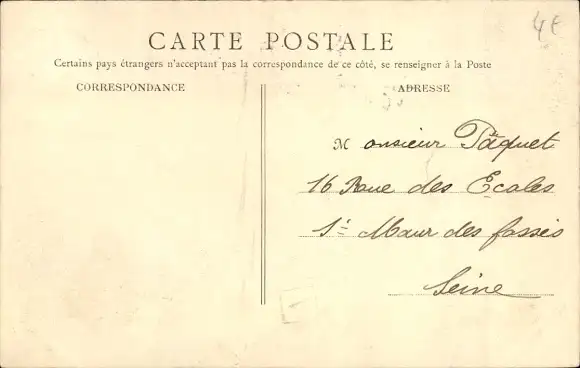 4€
CARTE POSTALE
Certains pays étrangers n'acceptant pas la correspondance de ce côté, se renseigner à la Poste
CORRESPONDANCE
ADRESSE
Monsieur Pâquet
16 Rue des Ecoles
St Maur des fossés
Seine